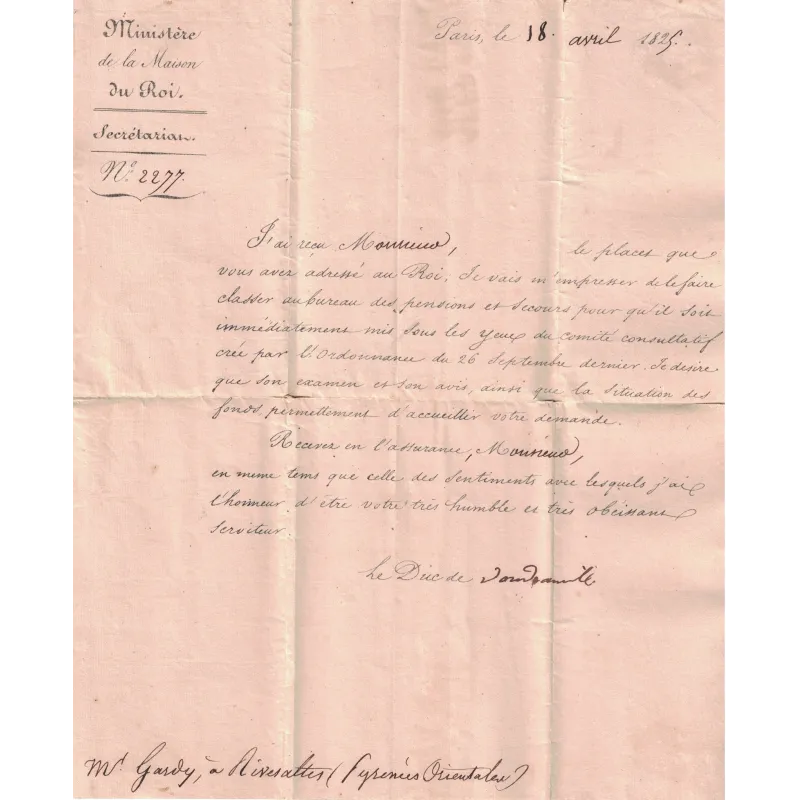 Ministère
de la Maison
du Roi.
Secrétariat.
N.° 2277.
Paris, le 18. avril 1825.
J'ai reçu Monsieur, le placet que
vous avez adressé au Roi. Je vais m'empresser de le faire
classer au bureau des pensions et secours pour qu'il soit
immédiatement mis sous les yeux du comité consultatif
créé par l'Ordonnance du 26 Septembre dernier. Je desire
que son examen et son avis, ainsi que la situation des
fonds, permettent d'accueillir votre demande.
Recevez en l'assurance, Monsieur,
en meme tems que celle des Sentiments avec lesquels j'ai
l'honneur d'être votre très humble et très obéissant
Serviteur.
Le Duc de Doudeauville
Mr. Gardy, à Rivesaltes (Pyrénées Orientales)